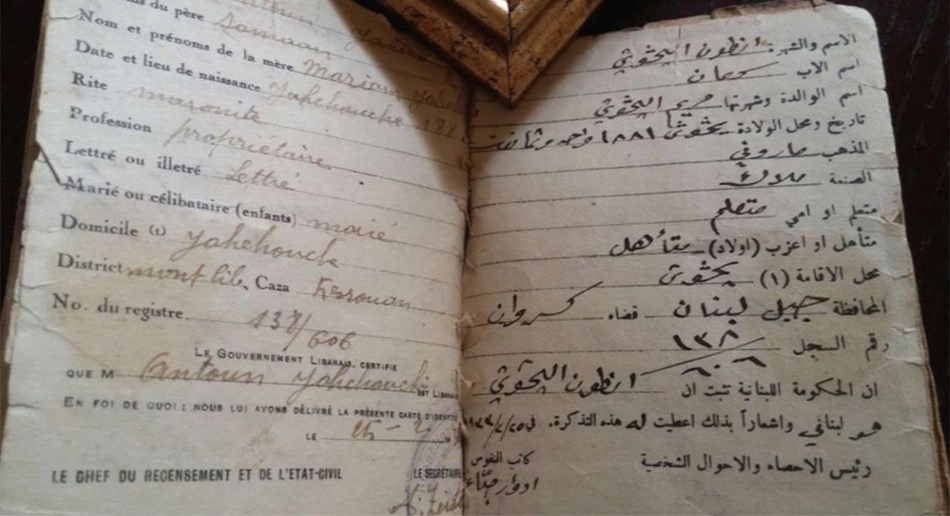 du père Samaan
Nom et prénoms de la mère Mariam
Date et lieu de naissance Yahchouche
Rite maronite
Profession propriétaire
Lettré ou illetré Lettré
Marié ou célibataire (enfants) marié
Domicile (1) Yahchouch
District mont lib. Caza Kesrouan
No. du registre. 138/606
LE GOUVERNEMENT LIBANAIS, CERTIFIE
QUE M Antoun Yahchouchi EST LIBANAIS
EN FOI DE QUOI : NOUS LUI AVONS DÉLIVRÉ LA PRÉSENTE CARTE D'IDENTITÉ
LE 25 - 2
LE CHEF DU RECENSEMENT ET DE L'ETAT-CIVIL LE SECRÉTAIRE
الاسم والشهرة انطون اليحشوشي
اسم الاب سمعان
اسم الوالدة وشهرتها مريم اليحشوشي
تاريخ ومحل الولادة يحشوش ١٨٨١
المذهب ماروني
الصنعة ملاك
متعلم او امي متعلم
متأهل او اعزب (اولاد) متأهل
محل الاقامة (١) يحشوش
المحافظة جبل لبنان قضاء كسروان
رقم السجل ١٣٨/٦٠٦
ان الحكومة اللبنانية تثبت ان انطون اليحشوشي
هو لبناني واشعاراً بذلك اعطيت له هذه التذكرة. في
رئيس الاحصاء والاحوال الشخصية كاتب النفوس
ادوار